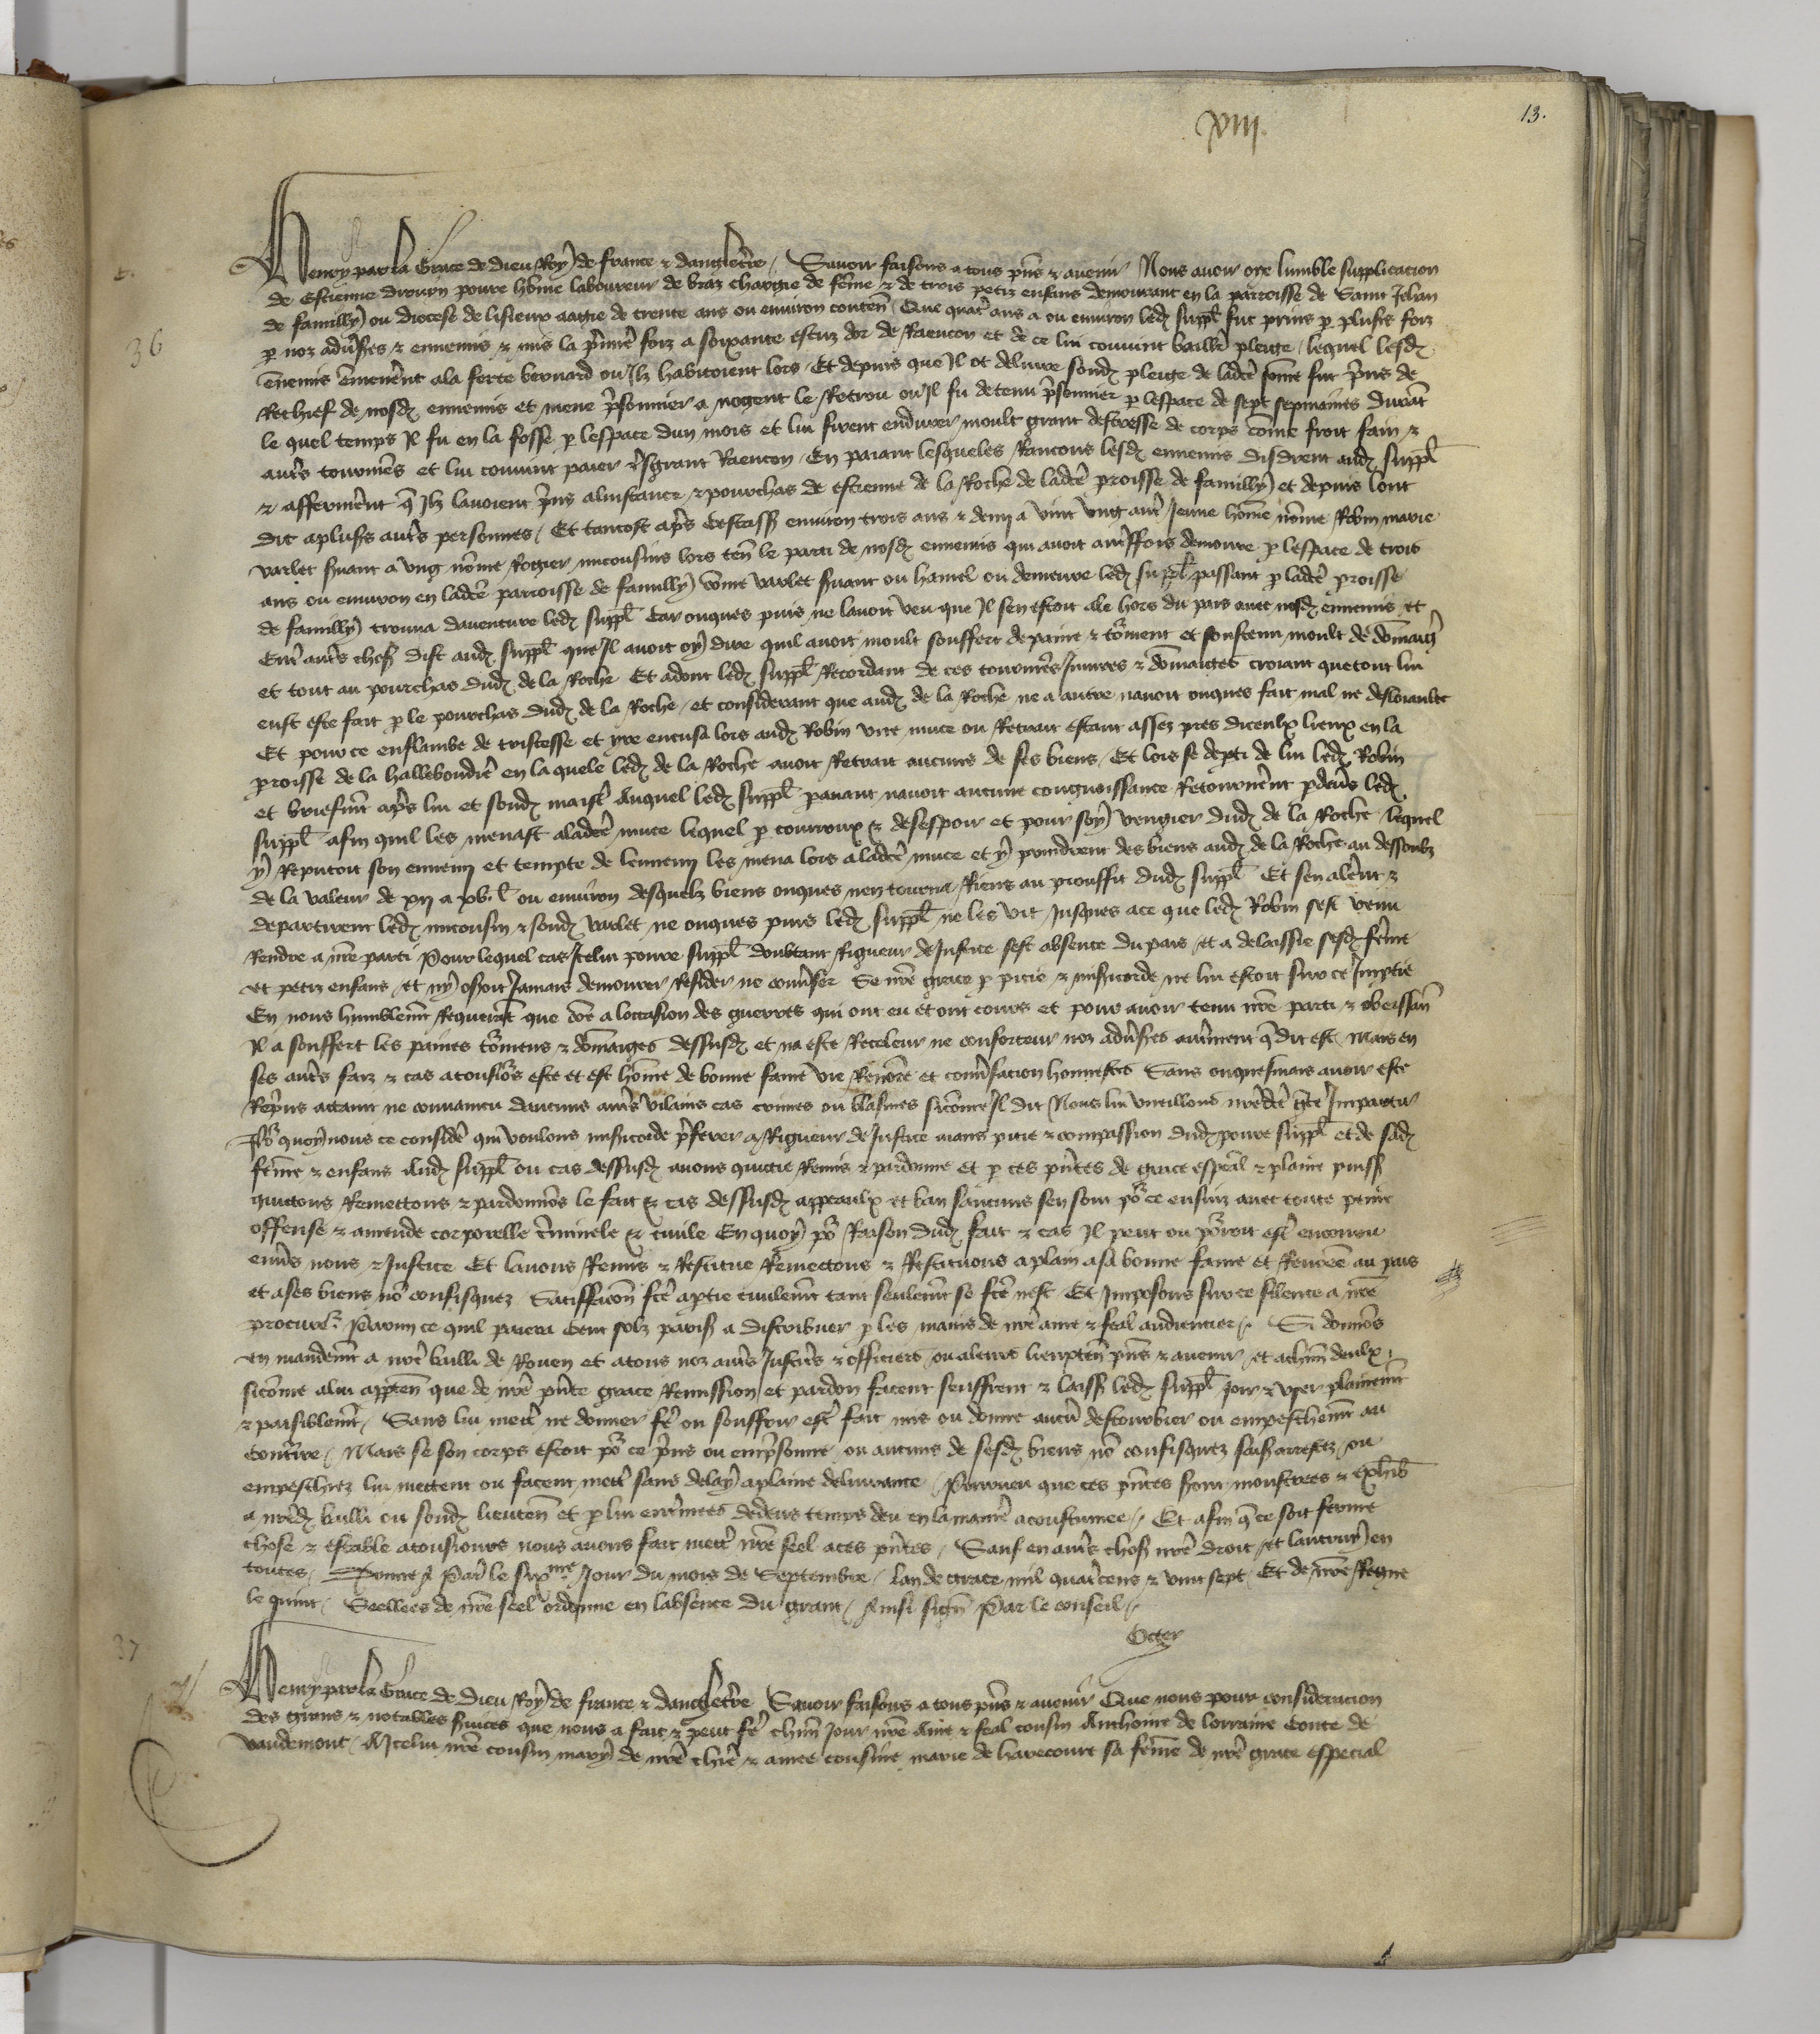 xiii
13.
Henry par la grace de dieu Roy de france & dangleterre / Savoir faisons a tous pns & avenir Nous avoir oye lumble supplicacion
de Estienne drouyn povre home laboureur de braz chargie de feme & de trois petiz enfans demourant en la parroisse de Saint Jehan
36
de familly ou diocese de lisieux aagie de trente ans ou environ conten / Que quatre ans a ou environ led suppl fut prins p pluss foiz
p noz advsres & ennemis & mis la pmiere foiz a soixante escuz dor de Raencon et de ce lui convint baillier pleige / lequel lesd
ennemis emmenerent a la ferte bernard ou Ilz habitoient lors / Et depuis que Il ot delivre sond pleige de ladcte some fut prins de
Rechief de nosd ennemis et mene psonnier a nogent le Retrou ou Il fu detenu psonnier p lespace de sept sepmaines durat
le quel temps Il fu en la fosse p lespace dun mois et lui firent endurer moult grant destresse de corps come froit fain &
autres tourmens et lui convint paier tresgrant Raencon / En paiant lesqueles Rancons lesd ennemis disdrent aud suppl
& affermerent q Ilz lavoient prins a linstance & pourchas de estienne de la Roche de ladcte proisse de familly et depuis lont
dit a pluss autres personnes / Et tantost apres cestass environ trois ans & demi a vint ung autre Jeune home nome Robin marie
varlet svant a ung nome Rogier lors ten le parti de nosd ennemis qui avoit autreffois demoure p lespace de trois
ans ou environ en ladcte parroisse de familly come varlet svant ou hamel ou demeure led suppl passant p ladcte proisse
de familly trouva daventure led suppl Car onques puis ne lavoit veu que Il sen estoit ale hors du pais avec nosd ennemis et
Entre autres choses dist aud suppl que Il avoit oy dire quil avoit moult souffert de paine & torment et soustenu moult de domaig
et tout au pourchas dud de la Roche Et adont led suppl Recordant de ces tourmens Injures & domaiges croiant que tout lui
eust este fait p le pourchas dud de la Roche / et considerant que aud de la Roche ne a autre navoit onques fait mal ne desloiaulte
Et pour ce enflambe de tristesse et yre encusa lors aud Robin une muce ou Retrait estant assez pres diceulx lieux en la
proisse de la hallebondiere en laquele led de la Roche avoit Retrait aucuns de ses biens / Et lors se depti de lui led Robin
et briefmt apres lui et sond maistre Auquel led suppl pavant navoit aucune congnoissance Retournerent pdevers led
suppl afin quil les menast a ladcte muce lequel p courroux & desespoir et pour soy vengier dud de la Roche lequel
Il Reputoit son ennemi et tempte de lennemi les mena lors a ladcte muce et y prindrent des biens aud de la Roche au dessoubz
de la valeur de xii a xv l ou environ desquelz biens onques nen tourna Riens au prouffit dud suppl Et sen alerent &
departirent led & sond varlet ne onques puis led suppl ne les vit Jusques a ce que led Robin sest venu
Rendre a nre parti Pour lequel cas Icelui povre suppl doubtant Rigueur de Justice sest absente du pais / et a delaissie sesd feme
et petiz enfans / et ny oseroit Jamais demourer Resider ne converser Se nre grace p pitie & misericorde ne lui estoit sur ce Imptie
En nous humblemt Requerat que come a loccasion des guerres qui ont eu et ont cours et pour avoir tenu nre parti & obeissan
Il a souffert les paines tormens & domaiges dessusd et na este Receleur ne conforteur noz advsres autrement q dit est / Mais en
ses autres faiz & cas a tousiours este et est home de bonne fame vie Renomee et conversacion honneste Sans onquesmais avoir este
Reprins attaint ne convaincu daucuns autres vilains cas crimes ou blasmes sicome Il dit Nous lui vueillons nredcte gce Impartir
Por quoy nous ce considere qui voulons misericorde preferer a Rigueur de Justice aians pitie & compassion dud povre suppl et de sad
feme & enfans Aud suppl ou cas dessusd avons quictie Remis & pardonne et p ces pntes de grace espcal & plaine puiss
quictons Remettons & pardonnons le fait & cas dessusd appeaulx et ban saucuns sen sont por ce ensuiz avec toute peine
offense & amende corporelle criminele & civile En quoy por Raison dud fait & cas Il peut ou porroit estre encouru
envers nous & Justice Et lavons Remis & Restitue Remectons & Restituons a plain a sa bonne fame et Renomee au pais
et a ses biens non confisquez Satisfacion fce a ptie civilemt tant seulemt se fce nest Et Imposons sur ce silence a nre
procureur / Parmi ce quil paiera cent solz parisis a distribuer p les mains de nre ame & feal audiencier / Si donnons
en mandemt a nre bailli de Rouen et a tous noz autres Justiciers & officiers ou a leurs lieuxten pns & avenir / et a chun deulx
sicome a lui apparten que de nre pnte grace Remission et pardon facent seuffrent & laiss led suppl Joir & user plainemt
& paisiblemt / Sans lui mectre ne donner fe ou souffrir estre fait mis ou donne aucun destourbier ou empeschemt au
contraire / Mais se son corps estoit por ce prins ou emprisonne ou aucuns de sesd biens non confisquez saisiz arrestez / ou
empeschiez lui mettent ou facent mettre sans delay a plaine delivrance / Pourveu que ces pntes seront monstrees & exhib
a nred bailli ou sond lieuten et p lui enterinees dedens temps deu en la maniere acoustumee / Et afin q ce soit ferme
chose & estable a tousiours nous avons fait mettre nre seel a ces pntes / Sauf en autres choses nre droit / et lautruy en
toutes / Donne a Paris le sixme Jour du mois de Septembre / Lan de grace mil quatrecens & vint sept / Et de nre Regne
le quint / Seellees de nre seel ordonne en labsence du grant / Ainsi signe Par le conseil /
37
Henry par la grace de dieu Roy de france & dangleterre Savoir faisons a tous pns & avenir Que nous pour consideracion
des grans & notables services que nous a fait & peut fe chun Jour nre ame & feal cousin Anthoine de lorraine Conte de
vaudemont / A Icelui nre cousin mary de nre chiere & amee cousine marie de harecourt sa feme de nre grace especial